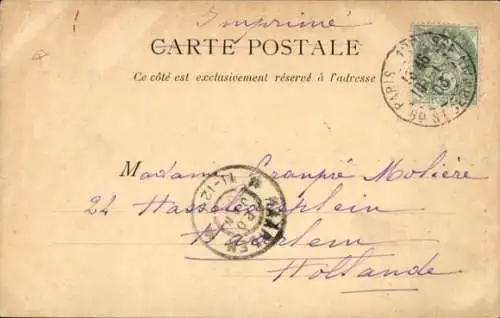 Imprimé
CARTE POSTALE
Ce côté est exclusivement réservé à l'adresse
PARIS
03
Madame Granpré Molière
24 Hasselaerplein
Haarlem
Hollande
11-12